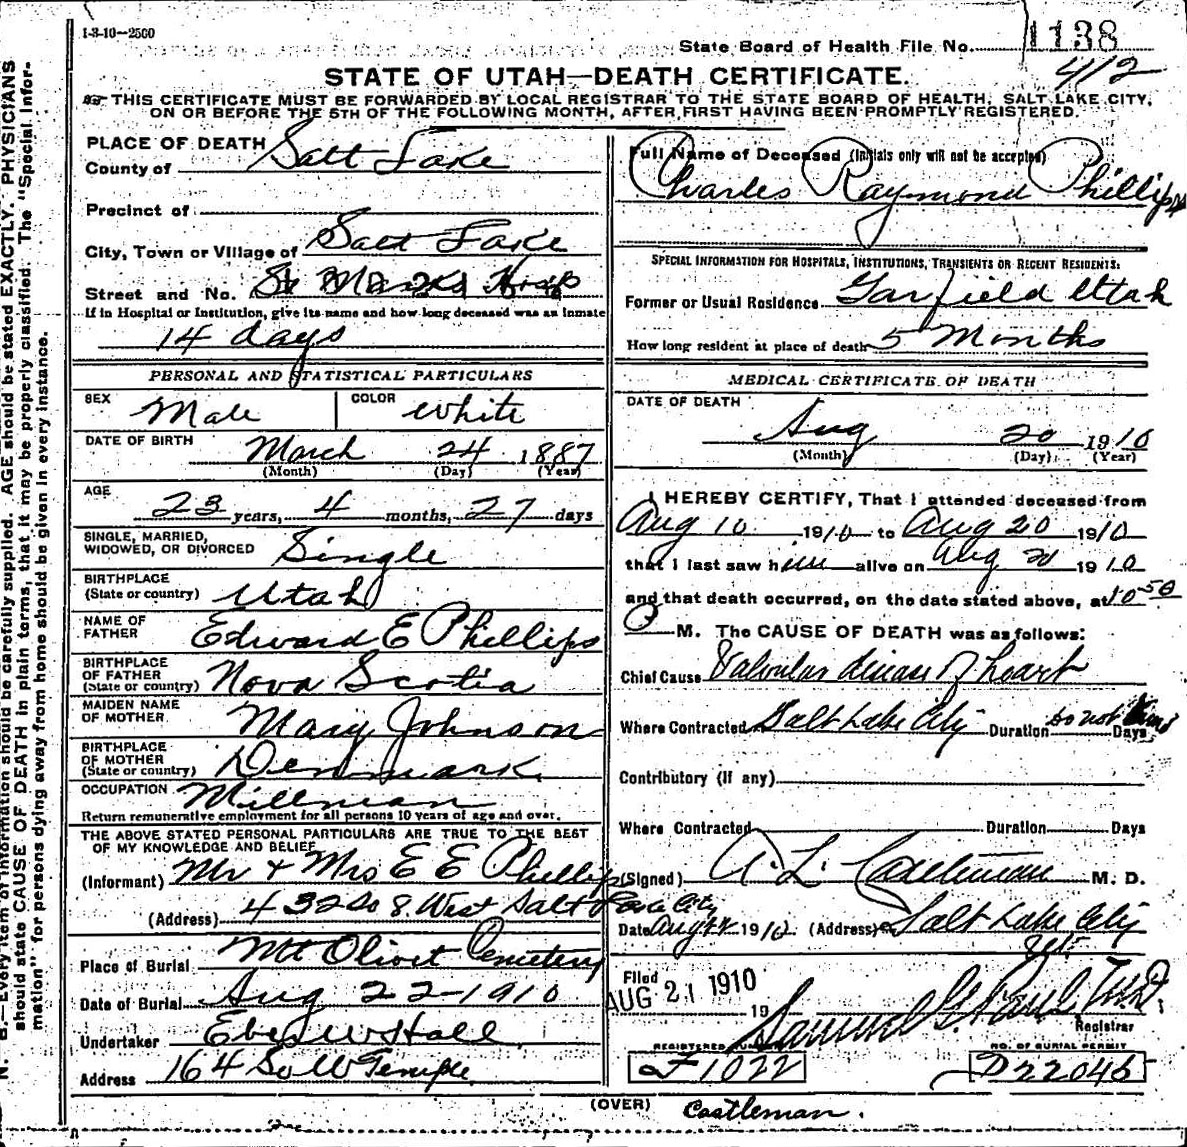 1-3-10-2500
State Board of Health File No. 1138
412
STATE OF UTAH—DEATH CERTIFICATE.
THIS CERTIFICATE MUST BE FORWARDED BY LOCAL REGISTRAR TO THE STATE BOARD OF HEALTH, SALT LAKE CITY,
ON OR BEFORE THE 5TH OF THE FOLLOWING MONTH, AFTER FIRST HAVING BEEN PROMPTLY REGISTERED.
N. B.—Every item of information should be carefully supplied. AGE should be stated EXACTLY. PHYSICIANS
should state CAUSE OF DEATH in plain terms, that it may be properly classified. The "Special Infor-
mation" for persons dying away from home should be given in every instance.
PLACE OF DEATH
County of Salt Lake
Precinct of
City, Town or Village of Salt Lake
Street and No. St Marks Hosp
If in Hospital or Institution, give its name and how long deceased was an inmate
14 days
PERSONAL AND STATISTICAL PARTICULARS
SEX Male COLOR White
DATE OF BIRTH March 24 1887
(Month) (Day) (Year)
AGE
23 years, 4 months, 27 days
SINGLE, MARRIED,
WIDOWED, OR DIVORCED Single
BIRTHPLACE
(State or country) Utah
NAME OF
FATHER Edward E Phillips
BIRTHPLACE
OF FATHER
(State or country) Nova Scotia
MAIDEN NAME
OF MOTHER Mary Johnson
BIRTHPLACE
OF MOTHER
(State or country) Denmark
OCCUPATION Millman
Return remunerative employment for all persons 10 years of age and over.
THE ABOVE STATED PERSONAL PARTICULARS ARE TRUE TO THE BEST
OF MY KNOWLEDGE AND BELIEF
(Informant) Mr & Mrs E E Phillips
(Address) 432 So 8 West Salt Lake City
Place of Burial Mt Olivet Cemetery
Date of Burial Aug 22-1910
Undertaker Eber W Hall
Address 164 So W Temple
Full Name of Deceased (Initials only will not be accepted)
Charles Raymond Phillips
SPECIAL INFORMATION FOR HOSPITALS, INSTITUTIONS, TRANSIENTS OR RECENT RESIDENTS:
Former or Usual Residence Garfield Utah
How long resident at place of death 5 Months
MEDICAL CERTIFICATE OF DEATH
DATE OF DEATH
Aug 20 1910
(Month) (Day) (Year)
I HEREBY CERTIFY, That I attended deceased from
Aug 10 1910 to Aug 20 1910
that I last saw him alive on Aug 20 1910
and that death occurred, on the date stated above, at 10 50
P M. The CAUSE OF DEATH was as follows:
Chief Cause Valvular disease of heart
Where Contracted Salt Lake City Duration Do not Days
Contributory (If any)
Where Contracted Duration Days
(Signed) A. L. Castleman M. D.
Date Aug 1910 (Address) Salt Lake City
Filed
AUG 21 1910
19
Samuel G. Paul
Registrar
REGISTERED NUMBER NO. OF BURIAL PERMIT
F1022 D22045
(OVER) Castleman.